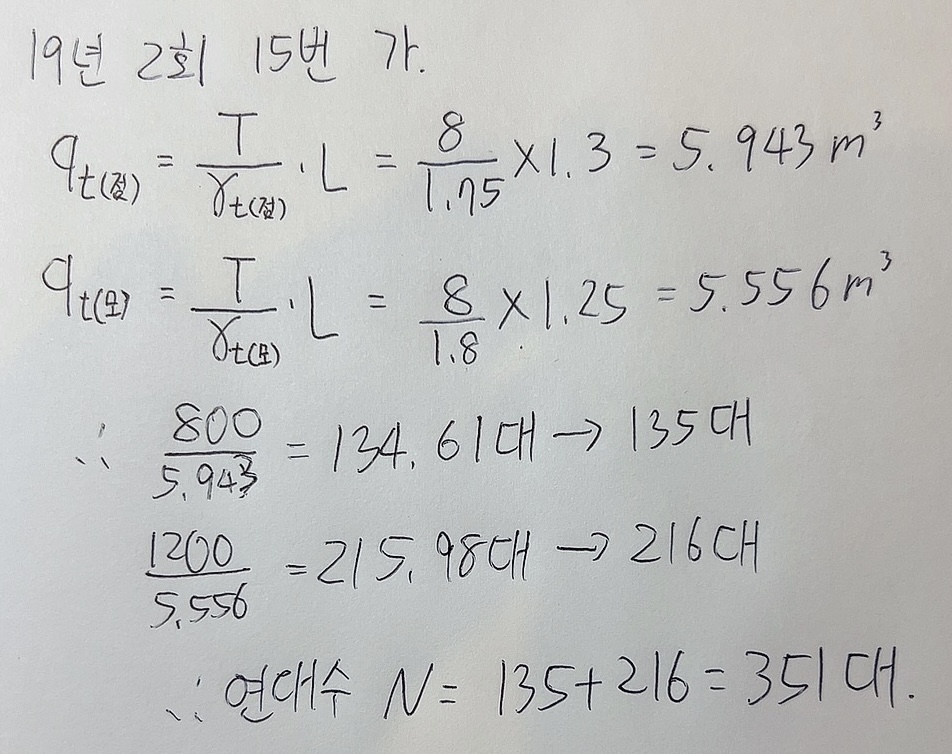 19년 2회 15번 가.
q_t(점) = T/γ_t(점) · L = 8/1.75 × 1.3 = 5.943 m³
q_t(모) = T/γ_t(모) · L = 8/1.8 × 1.25 = 5.556 m³
∴ 800/5.943 = 134.61대 → 135대
1200/5.556 = 215.98대 → 216대
∴ 연대수 N = 135+216 = 351대.